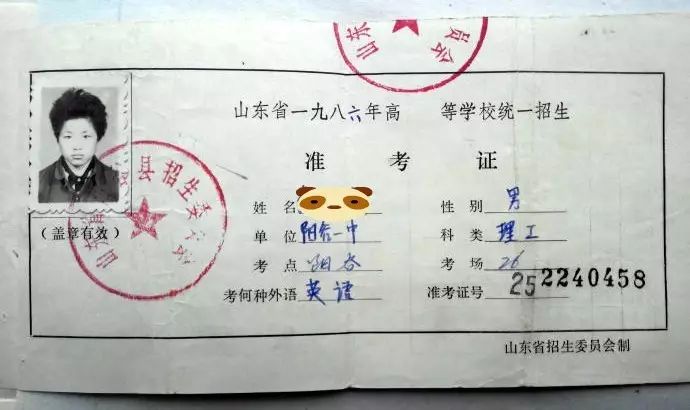 山东 员会
山东省一九八六年高 等学校统一招生
准考证
县招生委
山东省
(盖章有效)
姓名 性别 男
单位 阳谷一中 科类 理工
考点 阳谷 考场 26
考何种外语 英语 准考证号 25 2240458
山东省招生委员会制